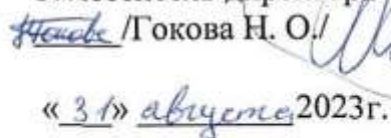 /Гокова Н. О./
« 31» августа 2023г.